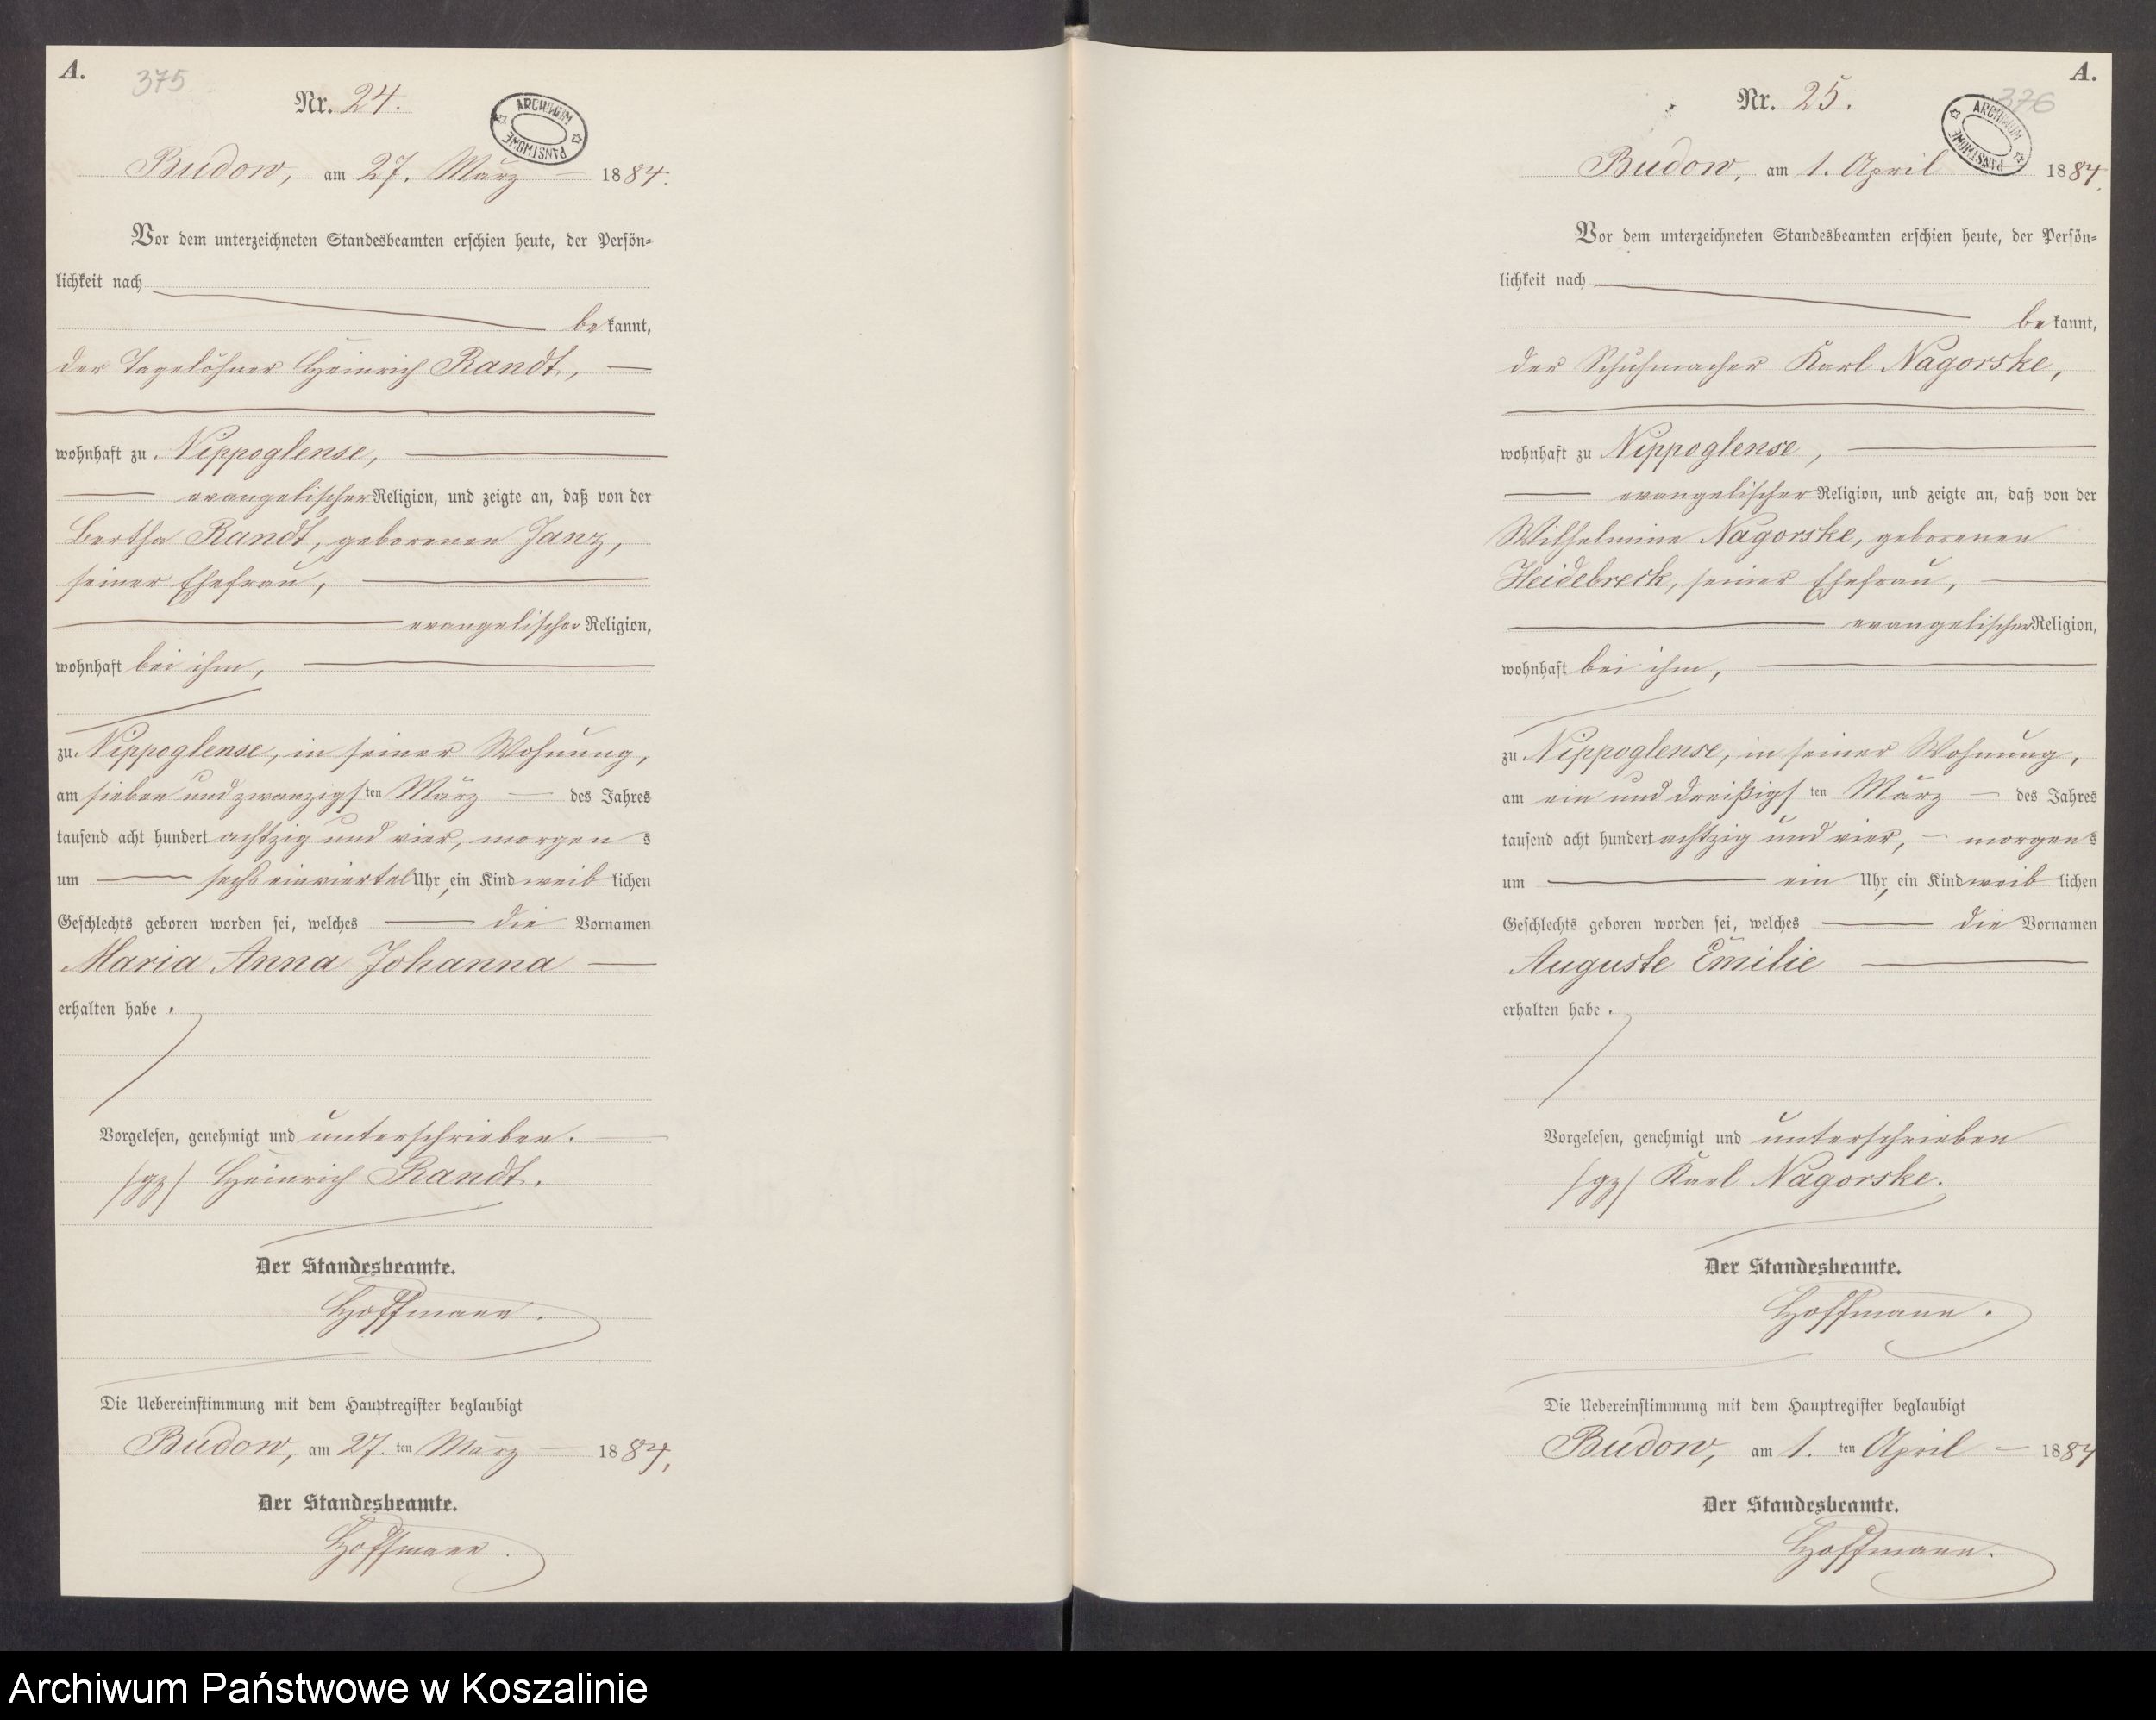 A.
375
Nr. 24.
ARCHIWUM PAŃSTWOWE
Budow, am 27. März 1884.
Vor dem unterzeichneten Standesbeamten erschien heute, der Persön-
lichkeit nach
bekannt,
der Tagelöhner Heinrich Randt,
wohnhaft zu Nippoglense,
evangelischer Religion, und zeigte an, daß von der
Bertha Randt, geborenen Janz,
seiner Ehefrau,
evangelischer Religion,
wohnhaft bei ihm,
zu Nippoglense, in seiner Wohnung,
am sieben und zwanzigsten März des Jahres
tausend acht hundert achtzig und vier, morgens
um sechs einviertel Uhr, ein Kind weiblichen
Geschlechts geboren worden sei, welches die Vornamen
Maria Anna Johanna
erhalten habe.
Vorgelesen, genehmigt und unterschrieben.
/gz/ Heinrich Randt.
Der Standesbeamte.
Hoffmann.
Die Uebereinstimmung mit dem Hauptregister beglaubigt
Budow, am 27. ten März 1884,
Der Standesbeamte.
Hoffmann.
A.
376
Nr. 25.
ARCHIWUM PAŃSTWOWE
Budow, am 1. April 1884.
Vor dem unterzeichneten Standesbeamten erschien heute, der Persön-
lichkeit nach
bekannt,
der Schuhmacher Karl Nagorske,
wohnhaft zu Nippoglense,
evangelischer Religion, und zeigte an, daß von der
Wilhelmine Nagorske, geborenen
Heidebreck, seiner Ehefrau,
evangelischer Religion,
wohnhaft bei ihm,
zu Nippoglense, in seiner Wohnung,
am ein und dreißigsten März des Jahres
tausend acht hundert achtzig und vier, morgens
um ein Uhr, ein Kind weiblichen
Geschlechts geboren worden sei, welches die Vornamen
Auguste Emilie
erhalten habe.
Vorgelesen, genehmigt und unterschrieben
/gz/ Karl Nagorske.
Der Standesbeamte.
Hoffmann.
Die Uebereinstimmung mit dem Hauptregister beglaubigt
Budow, am 1. ten April 1884
Der Standesbeamte.
Hoffmann.
Archiwum Państwowe w Koszalinie